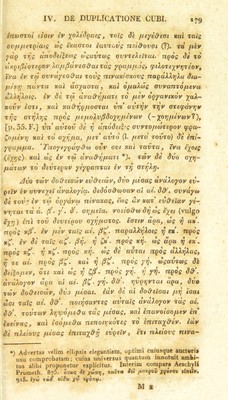 IV. DE DUPLICATIONE CUBI. 179
ἑπωσιοί εἰσιν ἐν χολέδραις, τοῖς δὲ μεγέθεσι καὶ ταῖς
συμμετρίαις ὡς ἕκαστοι ἑαυτοὺς πείθουσι (?). τὰ μὲν
γὰρ τῆς ἀποδείξεως ὡσαύτως συντελεῖται. πρὸς δὲ τὸ
ἀκριβέστερον λαμβάνεσθαι τὰς γραμμὰς, φιλοτεχνητέον,
ἵνα ἐν τῷ συνάγεσθαι τοὺς πινακίσκους παράλληλα δια-
μένῃ πάντα καὶ ἄσχαστα, καὶ ὁμαλῶς συναπτόμενα
ἀλλήλοις. ἐν δὲ τῷ ἀναθήματι τὸ μὲν ὀργανικὸν χαλ-
κοῦν ἐστι, καὶ καθήρμοσται ὑπ' αὐτὴν τὴν στεφάνην
τῆς στήλης πρὸς μεμολυβδοχοημένον
[p. 55. F.] ὑπ' αὐτοῦ δὲ ἡ ἀπόδειξις συντομώτερον φρα-
ζομένη καὶ τὸ σχῆμα, μετ' αὐτὸ δὲ τὸ ἐπί-
γραμμα. Ὑπογεγράφθω οὖν σοι καὶ ταῦτα, ἵνα ἔχοις
(ἔχῃς) καὶ ὡς ἐν τῷ ἀναθήματι *). τῶν δὲ δύο σχη-
μάτων τὸ δεύτερον γέγραπται ἐν τῇ στήλῃ.
Δύο τῶν δοθεισῶν εὐθειῶν, δύο μέσας ἀνάλογον εὑ-
ρεῖν ἐν συνεχεῖ ἀναλογίᾳ. δεδόσθωσαν αἱ αέ. δθ'. συνάγω
δὲ τοὺς ἐν τῷ ὀργάνῳ πίνακας, ἕως ἂν κατ' εὐθεῖαν γέ-
νηται τὰ α. β'. γ'. δ'. σημεῖα. νοείσθω δὴ ὡς ἔχει
ἐπὶ τοῦ δευτέρου σχήματος. ἔστιν ἄρα, ὡς ἡ ακ.
πρὸς κβ'. ἐν μὲν ταῖς αέ. βζ'. παραλλήλοις ἡ εκ. πρὸς
κζ'. ἐν δὲ ταῖς αζ. βη. ἡ ζκ πρὸς κη. ὡς ἄρα ἡ εκ.
πρὸς κζ'. ἡ κζ. πρὸς κη. ὡς δὲ αὗται πρὸς ἀλλήλας,
ἥ τε αέ. πρὸς βζ'. καὶ ἡ βζ'. πρὸς γη. ὡσαύτως δὲ
δείξομεν, ὅτι καὶ ὡς ἡ ζβ'. πρὸς γη. ἡ γη. πρὸς δθ'.
ἀνάλογον ἄρα αἱ αέ. βζ'. γη. δθ'. ηὕρηνται ἄρα, δύο
τῶν δοθεισῶν, δύο μέσαι. ἐὰν δὲ αἱ δοθεῖσαι μὴ ἴσαι
ὦσι ταῖς αέ. δθ'. ποιήσαντες αὐταῖς ἀνάλογον τὰς αέ.
δθ'. τούτων ληψόμεθα τὰς μέσας, καὶ ἐπανοίσομεν ἐπ'
ἐκείνας, καὶ ἐσόμεθα πεποιηκότες τὸ ἐπιταχθέν. ἐὰν
δὲ πλείους μέσας ἐπιταχθῇ εὑρεῖν, ἔτι πλείους πινα-
*) Advertas velim ellipsin elegantiam, optimi cuiusque auctoris
usu comprobatam; cuius universus quantum innotuit ambi-
tus alibi proponetur explicitur. Interim compara Aeschyli
Prometh.
M 2